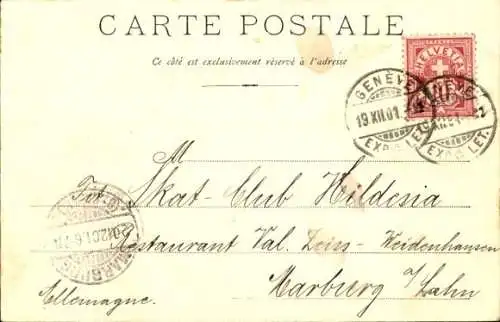 CARTE POSTALE
Ce côté est exclusivement réservé à l'adresse
HELVETIA
GENÈVE
19.XII.01
EXP. LET.
M
Tit. Skat-Club Hildesia
Restaurant Val. Zeiss-Weidenhausen
Marburg a/Lahn
Allemagne.
MARBURG
20.12.01.6-7